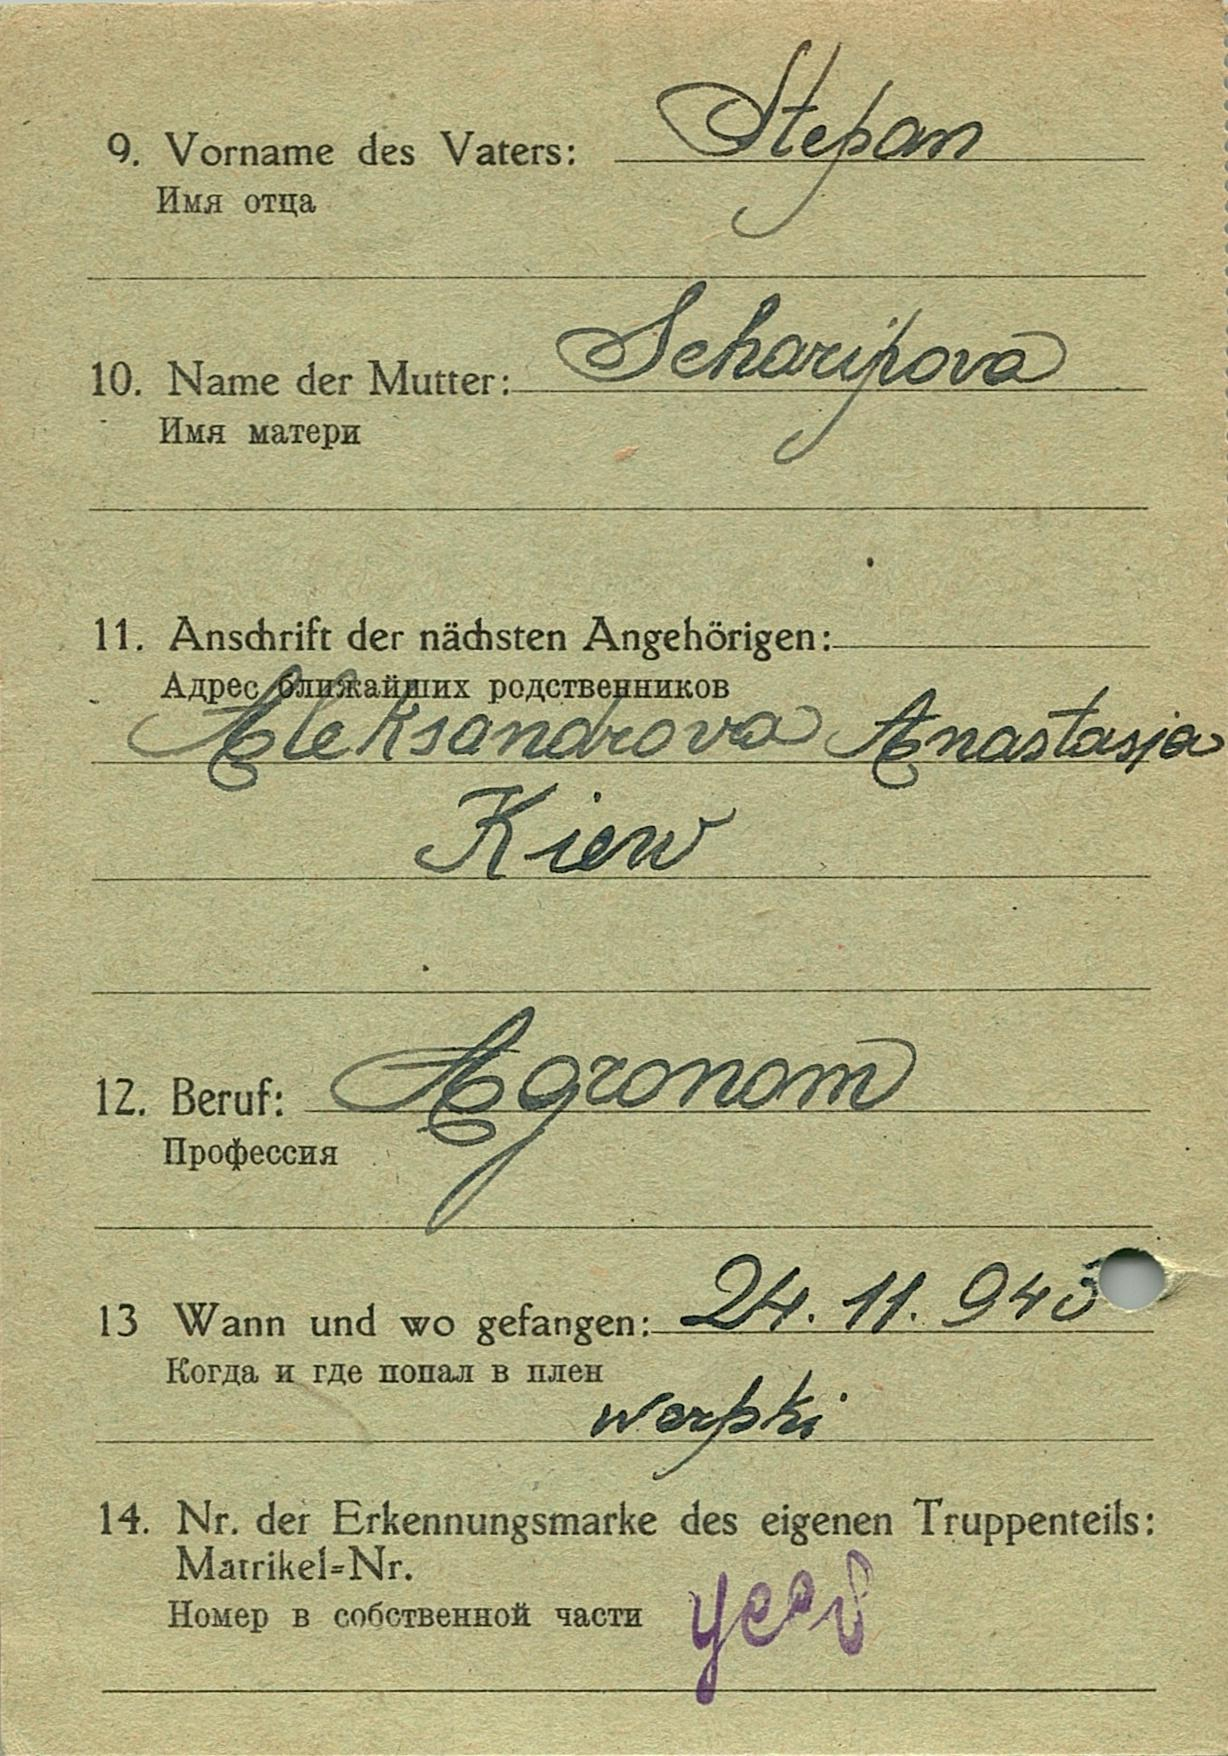 9. Vorname des Vaters: Stepan
Имя отца
10. Name der Mutter: Scharipova
Имя матери
11. Anschrift der nächsten Angehörigen:
Адрес ближайших родственников
Aleksandrova Anastasja
Kiew
12. Beruf: Agronom
Профессия
13 Wann und wo gefangen: 24. 11. 943
Когда и где попал в плен
14. Nr. der Erkennungsmarke des eigenen Truppenteils:
Matrikel=Nr.
Номер в собственной части